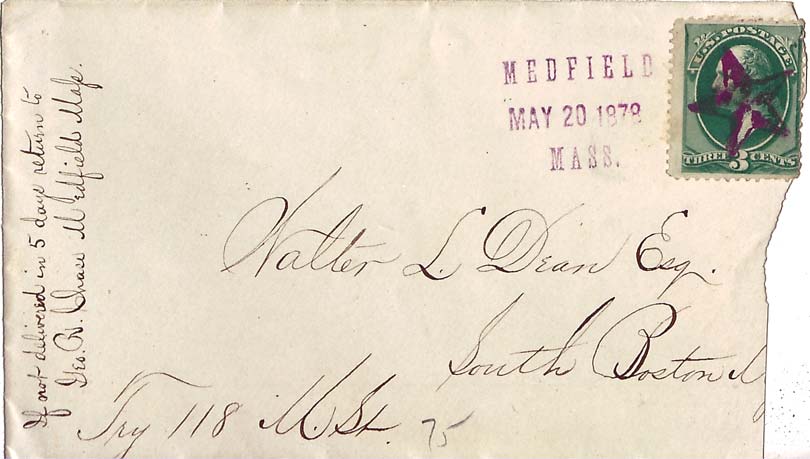 If not delivered in 5 days return to
Geo. R. Chase Medfield Mass.
MEDFIELD
MAY 20 1878
MASS.
U.S. POSTAGE
THREE 3 CENTS
Walter L. Dean Esq.
South Boston M
Try 118 M. St.
75